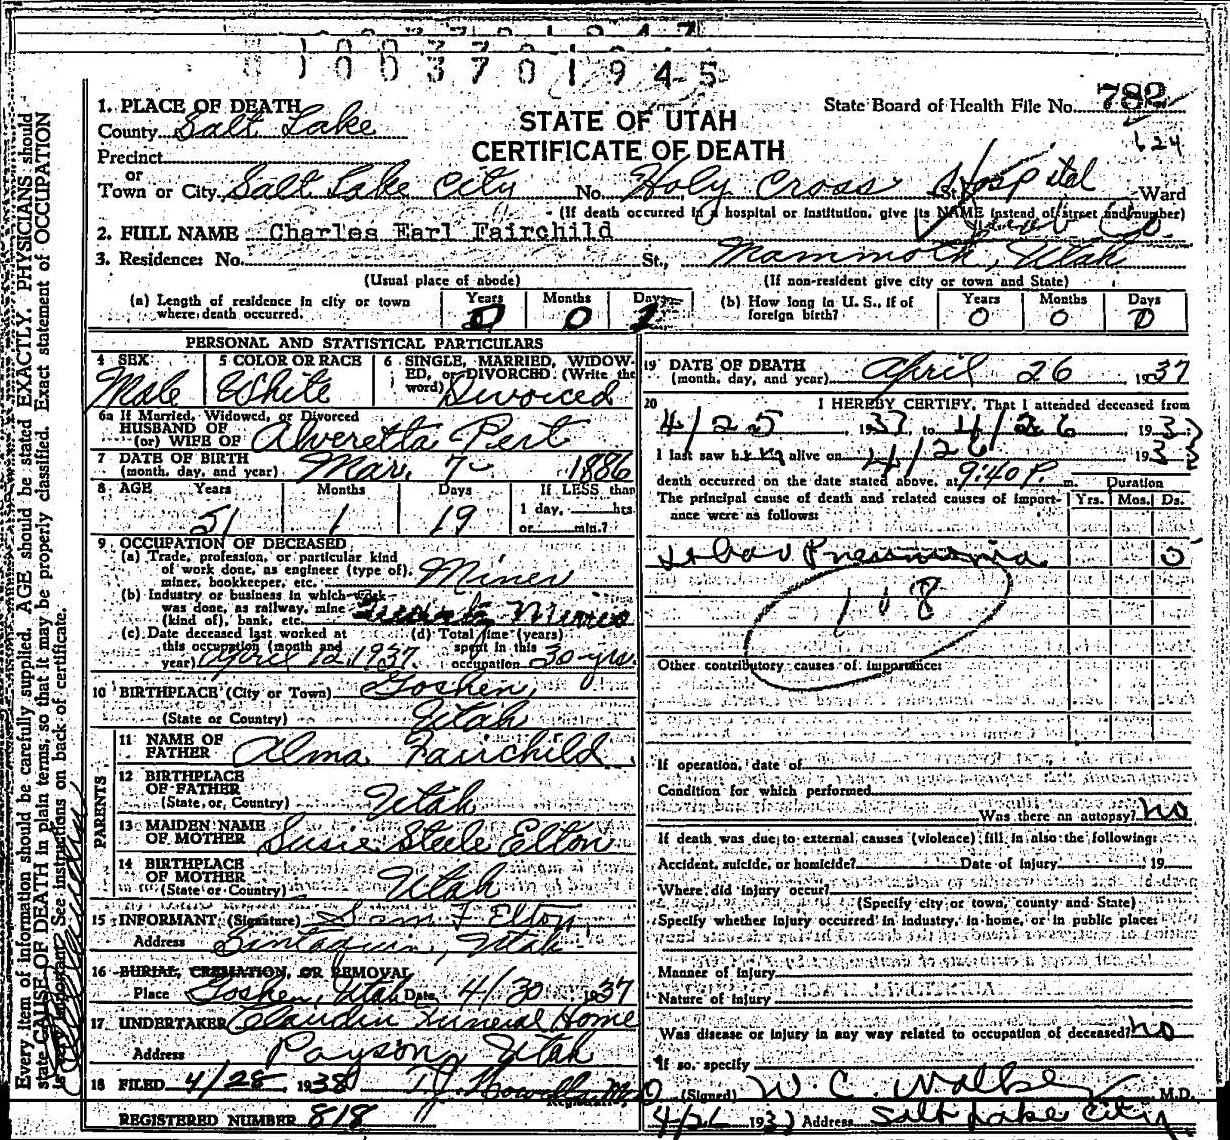 1 0 0 3 7 0 1 9 4 5
State Board of Health File No. 782
624
STATE OF UTAH
CERTIFICATE OF DEATH
1. PLACE OF DEATH
County Salt Lake
Precinct
or
Town or City Salt Lake City No. Holy Cross Hospital St. Ward
(If death occurred in a hospital or institution, give its NAME instead of street and number)
2. FULL NAME Charles Earl Fairchild
Juab Co.
3. Residence: No. St., Mammoth, Utah
(Usual place of abode) (If non-resident give city or town and State)
(a) Length of residence in city or town where death occurred. Years 0 Months 0 Days
(b) How long in U. S., if of foreign birth? Years 0 Months 0 Days 0
PERSONAL AND STATISTICAL PARTICULARS
4 SEX Male
5 COLOR OR RACE White
6 SINGLE, MARRIED, WIDOWED, or DIVORCED (Write the word) Divorced
6a If Married, Widowed, or Divorced
HUSBAND OF
(or) WIFE OF Alveretta Pert
7 DATE OF BIRTH
(month, day, and year) Mar. 7 1886
8 AGE Years 51 Months 1 Days 19 If LESS than
1 day, hrs.
or min.?
9 OCCUPATION OF DECEASED
(a) Trade, profession, or particular kind
of work done, as engineer (type of),
miner, bookkeeper, etc. Miner
(b) Industry or business in which work
was done, as railway, mine
(kind of), bank, etc.
(c) Date deceased last worked at
this occupation (month and
year) April 12, 1937
(d) Total time (years)
spent in this
occupation 30 yrs.
10 BIRTHPLACE (City or Town) Goshen,
(State or Country) Utah
PARENTS
11 NAME OF
FATHER Alma Fairchild
12 BIRTHPLACE
OF FATHER
(State or Country) Utah
13 MAIDEN NAME
OF MOTHER Susie Steele Elton
14 BIRTHPLACE
OF MOTHER
(State or Country) Utah
15 INFORMANT (Signature) Sam F Elton
Address Santaquin, Utah
16 BURIAL, CREMATION, OR REMOVAL
Place Goshen, Utah Date 4/30 1937
17 UNDERTAKER Claudin Funeral Home
Address Payson, Utah
18 FILED 4/28 1938
Registrar.
REGISTERED NUMBER 818
19 DATE OF DEATH
(month, day, and year) April 26 1937
20 I HEREBY CERTIFY, That I attended deceased from
4/25, 1937, to 4/26, 193
I last saw him alive on 4/26 193
death occurred on the date stated above, at 9:40 P. m.
The principal cause of death and related causes of importance were as follows:
Duration
Yrs. Mos. Ds.
Lobar Pneumonia 0
108
Other contributory causes of importance:
If operation, date of
Condition for which performed
Was there an autopsy? no
If death was due to external causes (violence) fill in also the following:
Accident, suicide, or homicide? Date of injury 19
Where did injury occur?
(Specify city or town, county and State)
Specify whether injury occurred in industry, in home, or in public place:
Manner of injury
Nature of injury
Was disease or injury in any way related to occupation of deceased? no
If so, specify
(Signed) W. C. M.D.
4/26 193 Address Salt Lake City
Every item of information should be carefully supplied. AGE should be stated EXACTLY. PHYSICIANS should
state CAUSE OF DEATH in plain terms, so that it may be properly classified. Exact statement of OCCUPATION
is very important. See instructions on back of certificate.